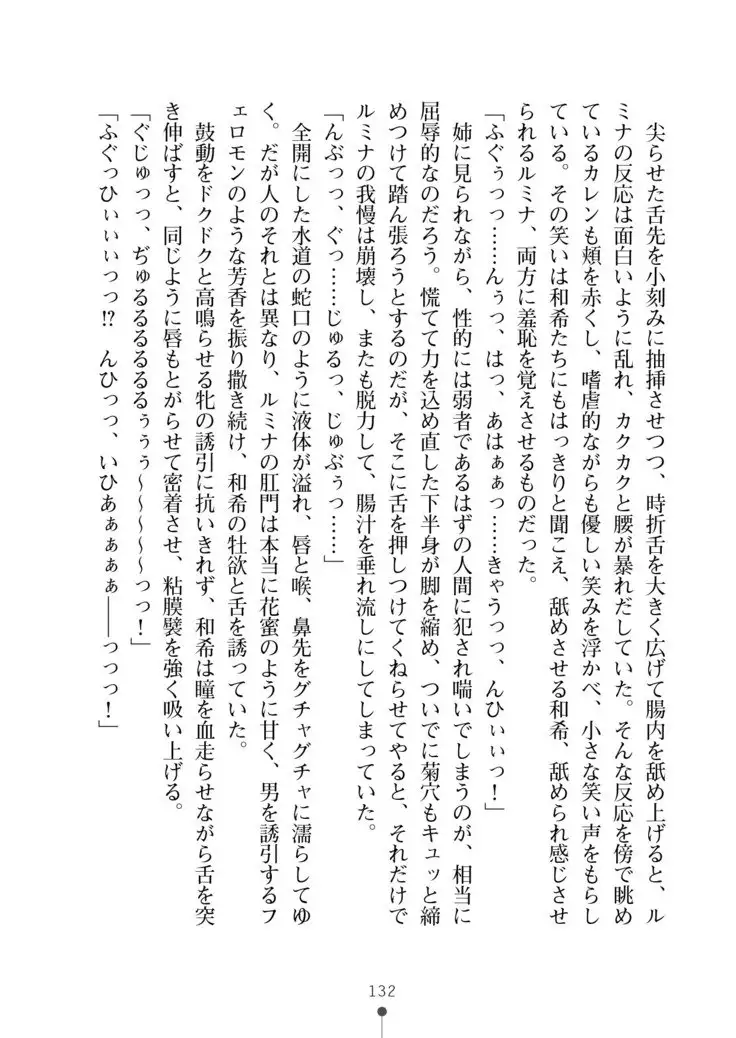 尖らせた舌先を小刻みに抽挿させつつ、時折舌を大きく広げて腸内を舐め上げると、ル
ミナの反応は面白いように乱れ、カクカクと腰が暴れだしていた。そんな反応を傍で眺め
ているカレンも頬を赤くし、嗜虐的ながらも優しい笑みを浮かべ、小さな笑い声をもらし
ている。その笑いは和希たちにもはっきりと聞こえ、舐めさせる和希、舐められ感じさせ
られるルミナ、両方に羞恥を覚えさせるものだった。
「ふぐぅっっ……んぅっ、はっ、あはぁぁっ……きゃうっっ、んひぃぃっ！」
　姉に見られながら、性的には弱者であるはずの人間に犯され喘いでしまうのが、相当に
屈辱的なのだろう。慌てて力を込め直した下半身が脚を縮め、ついでに菊穴もキュッと締
めつけて踏ん張ろうとするのだが、そこに舌を押しつけてくねらせてやると、それだけで
ルミナの我慢は崩壊し、またも脱力して、腸汁を垂れ流しにしてしまっていた。
「んぶっっ、ぐっ……じゅるっ、じゅぶぅっ……」
　全開にした水道の蛇口のように液体が溢れ、唇と喉、鼻先をグチャグチャに濡らしてゆ
く。だが人のそれとは異なり、ルミナの肛門は本当に花蜜のように甘く、男を誘引するフ
ェロモンのような芳香を振り撒き続け、和希の牡欲と舌を誘っていた。
　鼓動をドクドクと高鳴らせる牝の誘引に抗いきれず、和希は瞳を血走らせながら舌を突
き伸ばすと、同じように唇もとがらせて密着させ、粘膜襞を強く吸い上げる。
「ぐじゅっっ、ぢゅるるるるるぅぅぅ〜〜〜〜〜っっ！」
「ふぐっひぃぃぃっっ!?　んひっっ、いひあぁぁぁぁ――っっっ！」
132